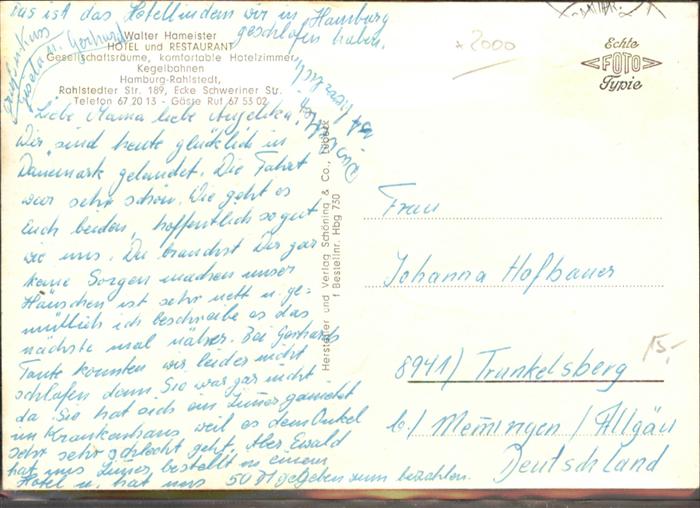 Das ist das Hotel indem wir in Hamburg
geschlafen haben.
Walter Hameister
HOTEL und RESTAURANT
Gesellschaftsräume, komfortable Hotelzimmer,
Kegelbahnen
Hamburg-Rahlstedt,
Rahlstedter Str. 189, Ecke Schweriner Str.
Telefon 67 20 13 - Gäste Ruf 67 53 02
Liebe Mama liebe Angelika!
Wir sind heute glücklich in
Dänemark gelandet. Die Fahrt
war sehr schön. Wie geht es
Euch beiden, hoffentlich so gut
wie uns. Du brauchst Dir gar
keine Sorgen machen unser
Häuschen ist sehr nett u. ge-
mütlich ich beschreibe es das
nächste mal näher. Bei Gerhards
Tante konnten wir leider nicht
schlafen denn Sie war gar nicht
da. Sie hat sich ein Zimer gemietet
im Krankenhaus weil es dem Onkel
sehr sehr schlecht geht. Aber Ewald
hat uns Zimer bestellt in einem
Hotel u. hat uns 50 DM gegeben zum bezahlen.
Gruß u. Kuss
Gisela u. Gerhard
Hersteller und Verlag Schöning & Co., Lübeck
f Bestellnr. Hbg 730
x 2000
Echte
FOTO
Typie
Frau
Johanna Hofbauer
8941) Trunkelsberg
b./ Memmingen / Allgäu
Deutschland
15,-